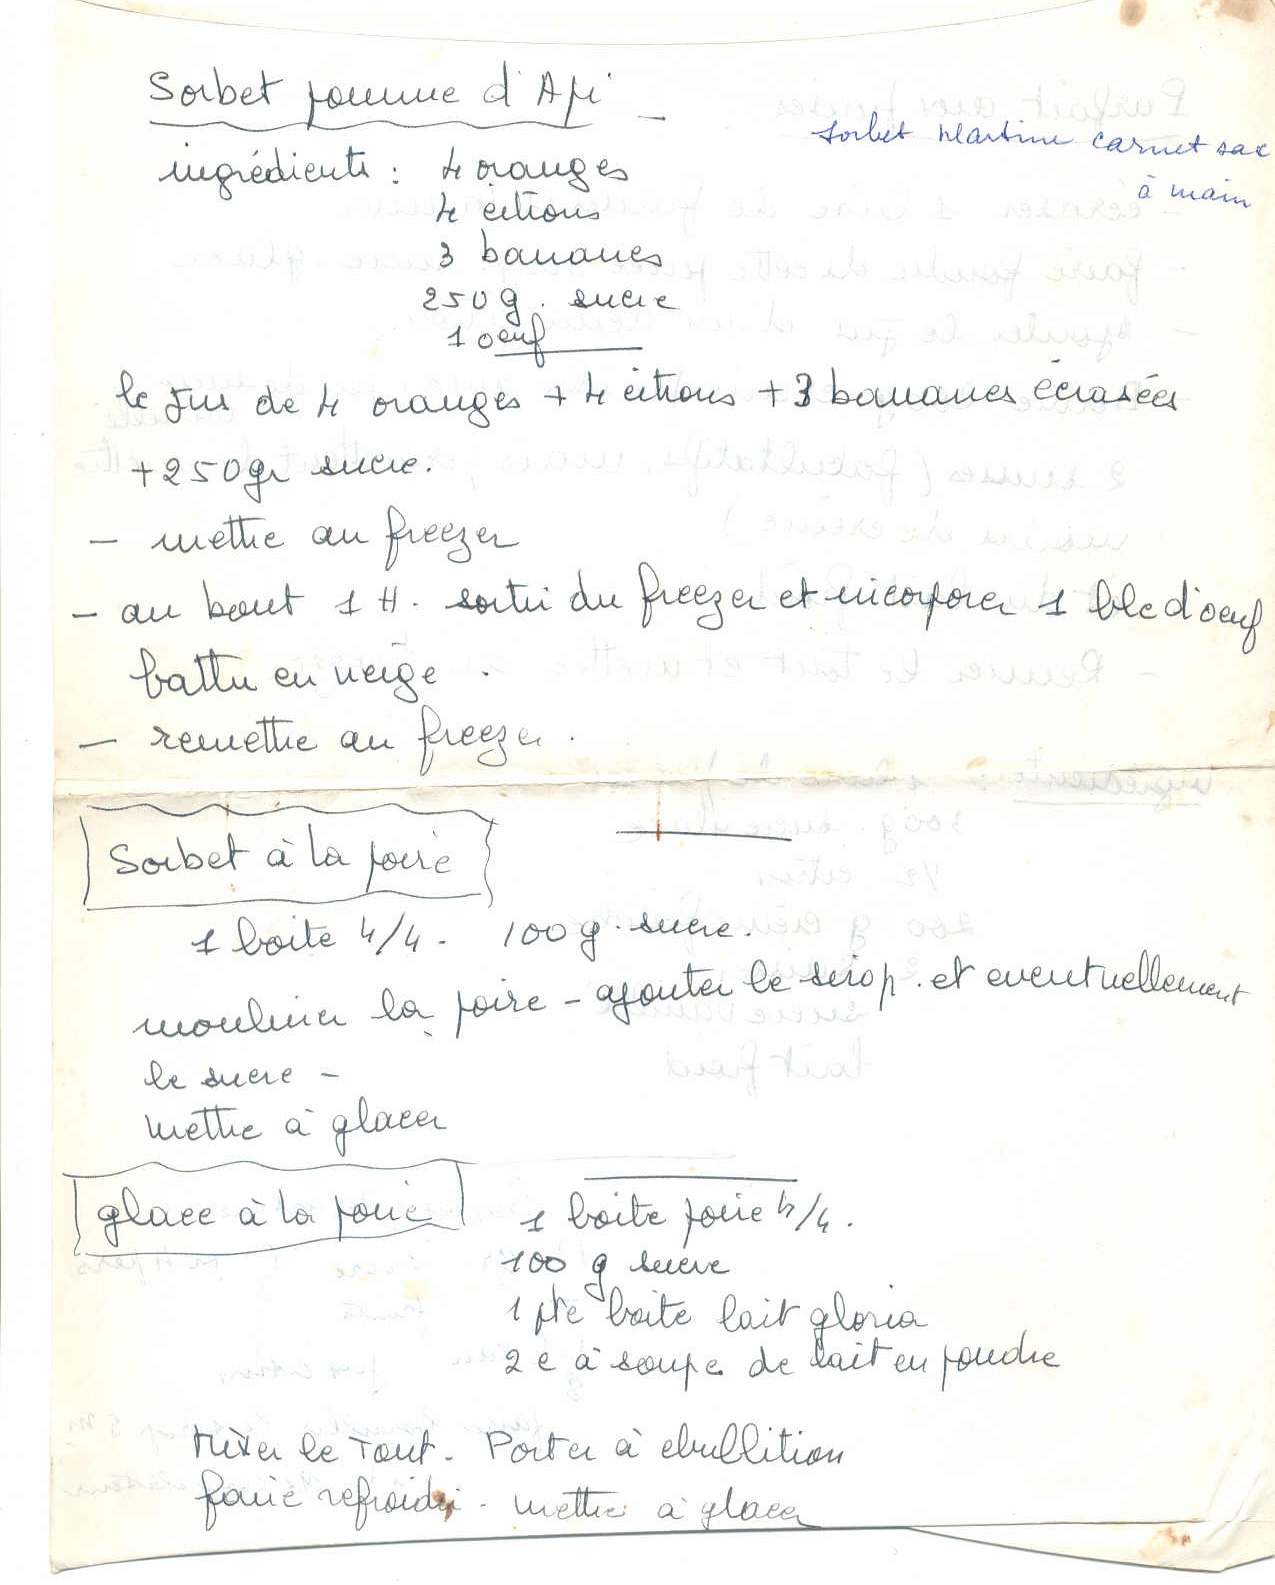 Sorbet pomme d'Api
sorbet Martine carnet sac
à main
ingrédients : 4 oranges
4 citrons
3 bananes
250 g. sucre
1 oeuf
le jus de 4 oranges + 4 citrons + 3 bananes écrasées
+ 250gr sucre.
- mettre au freezer
- au bout 1 H. sortir du freezer et incorporer 1 blc d'oeuf
battu en neige.
- remettre au freezer.
Sorbet à la poire
1 boite 4/4. 100 g. sucre.
mouliner la poire - ajouter le sirop. et eventuellement
le sucre -
mettre à glacer
glace à la poire
1 boite poire 4/4.
100 g sucre
1 pte boite lait gloria
2 c à soupe de lait en poudre
Mixer le Tout. Porter à ebullition
faire refroidir. mettre à glacer